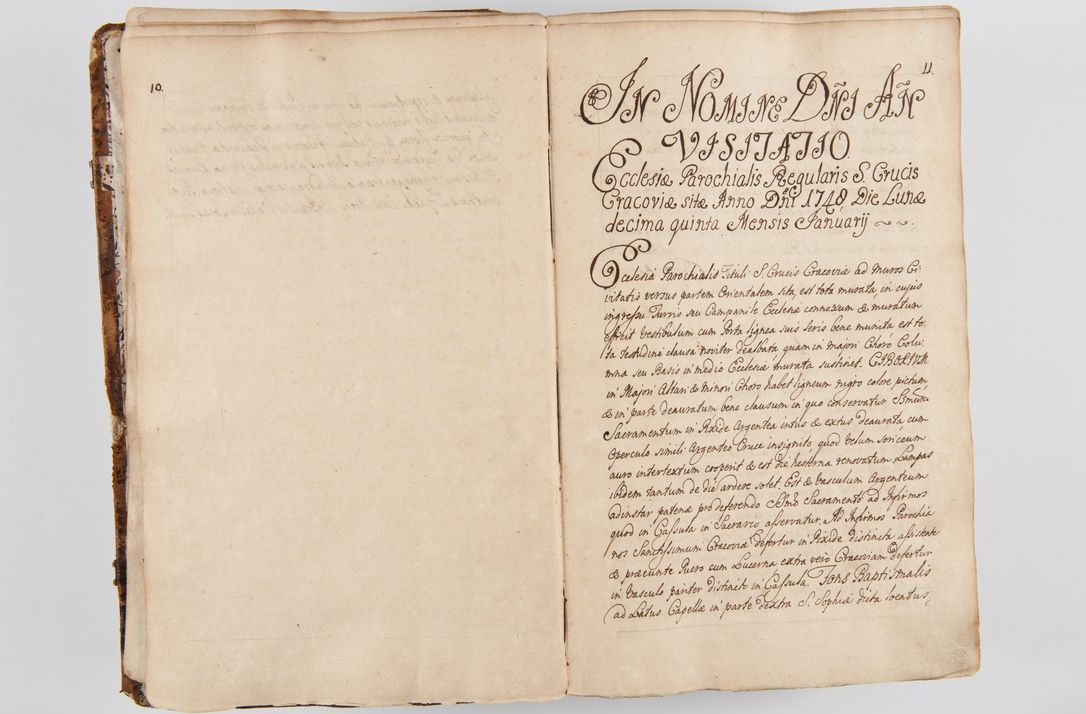 10.
11.
IN NOMINE DÑI AÑ
VISITATIO
Ecclesiæ Parochialis Regularis S. Crucis
Cracoviæ sitæ Anno Dñi 1748, Die Lunæ
decima quinta Mensis Januarij ~ ~.
Ecclesia Parochialis Tituli S. Crucis Cracoviæ ad muros Ci-
vitatis versus partem Orientalem sita, est tota murata, in cujus
ingressu Turris seu Campanile Ecclesiæ connexum & muratum
efficit vestibulum cum Porta lignea suis seris bene munita est to-
ta testudine clausa noviter dealbata quam in majori Choro Colu-
mna seu Basis in medio Ecclesiæ murata sustinet. CIBORIUM
in Majori Altari & minori Choro habet ligneum nigro colore pictum
& in parte deauratum, bene clausum in quo conservatur SSmum
Sacramentum in Pixide Argentea intus & extus deaurata, cum
operculo simili Argenteo Cruce insignito, quod velum sericeum
auro intertextum cooperit & est die hesterna renovatum Lampas
ibidem tantum de die ardere solet. Est & vasculum Argenteum
adinstar patenæ pro deferendo SSmo Sacramento ad Infirmos
quod in Capsula in Sacrario asservatur. Ad Infirmos Parochia-
nos Sanctissimum Cracoviæ defertur in Pixide distincta assistente
& præeunte Puero cum Lucerna extra vero Cracoviam defertur
in vasculo pariter distincto in Capsula. Fons Baptismalis
ad Latus Capellæ in parte dextra S. Sophiæ dicta locatus,